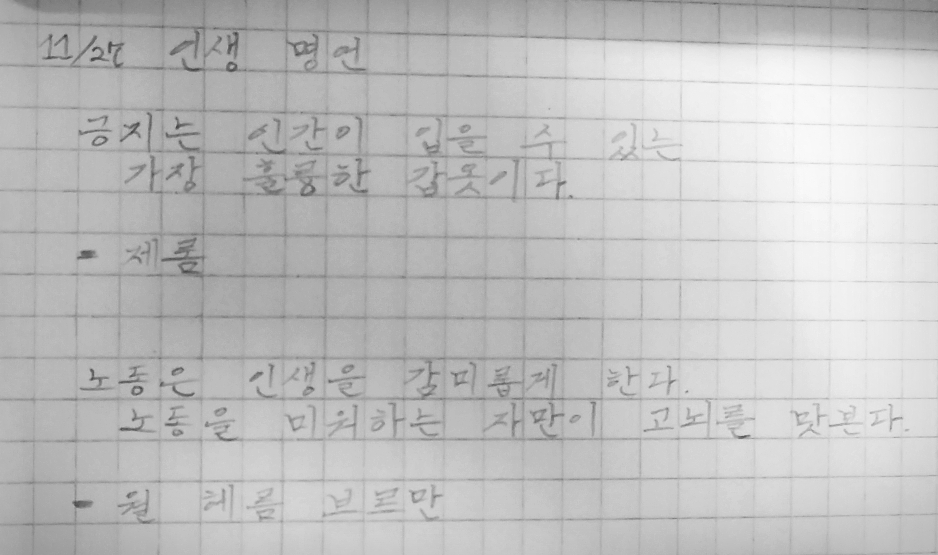 11/27 인생 명언
긍지는 인간이 입을 수 있는
가장 훌륭한 갑옷이다.
- 제롬
노동은 인생을 감미롭게 한다.
노동을 미워하는 자만이 고뇌를 맛본다.
- 윌 헤름 브르만